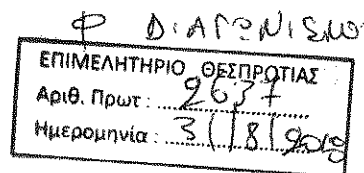 Φ ΔΙΑΓΩΝΙΣΜΟ
ΕΠΙΜΕΛΗΤΗΡΙΟ ΘΕΣΠΡΩΤΙΑΣ
Αριθ. Πρωτ: 2637
Ημερομηνία: